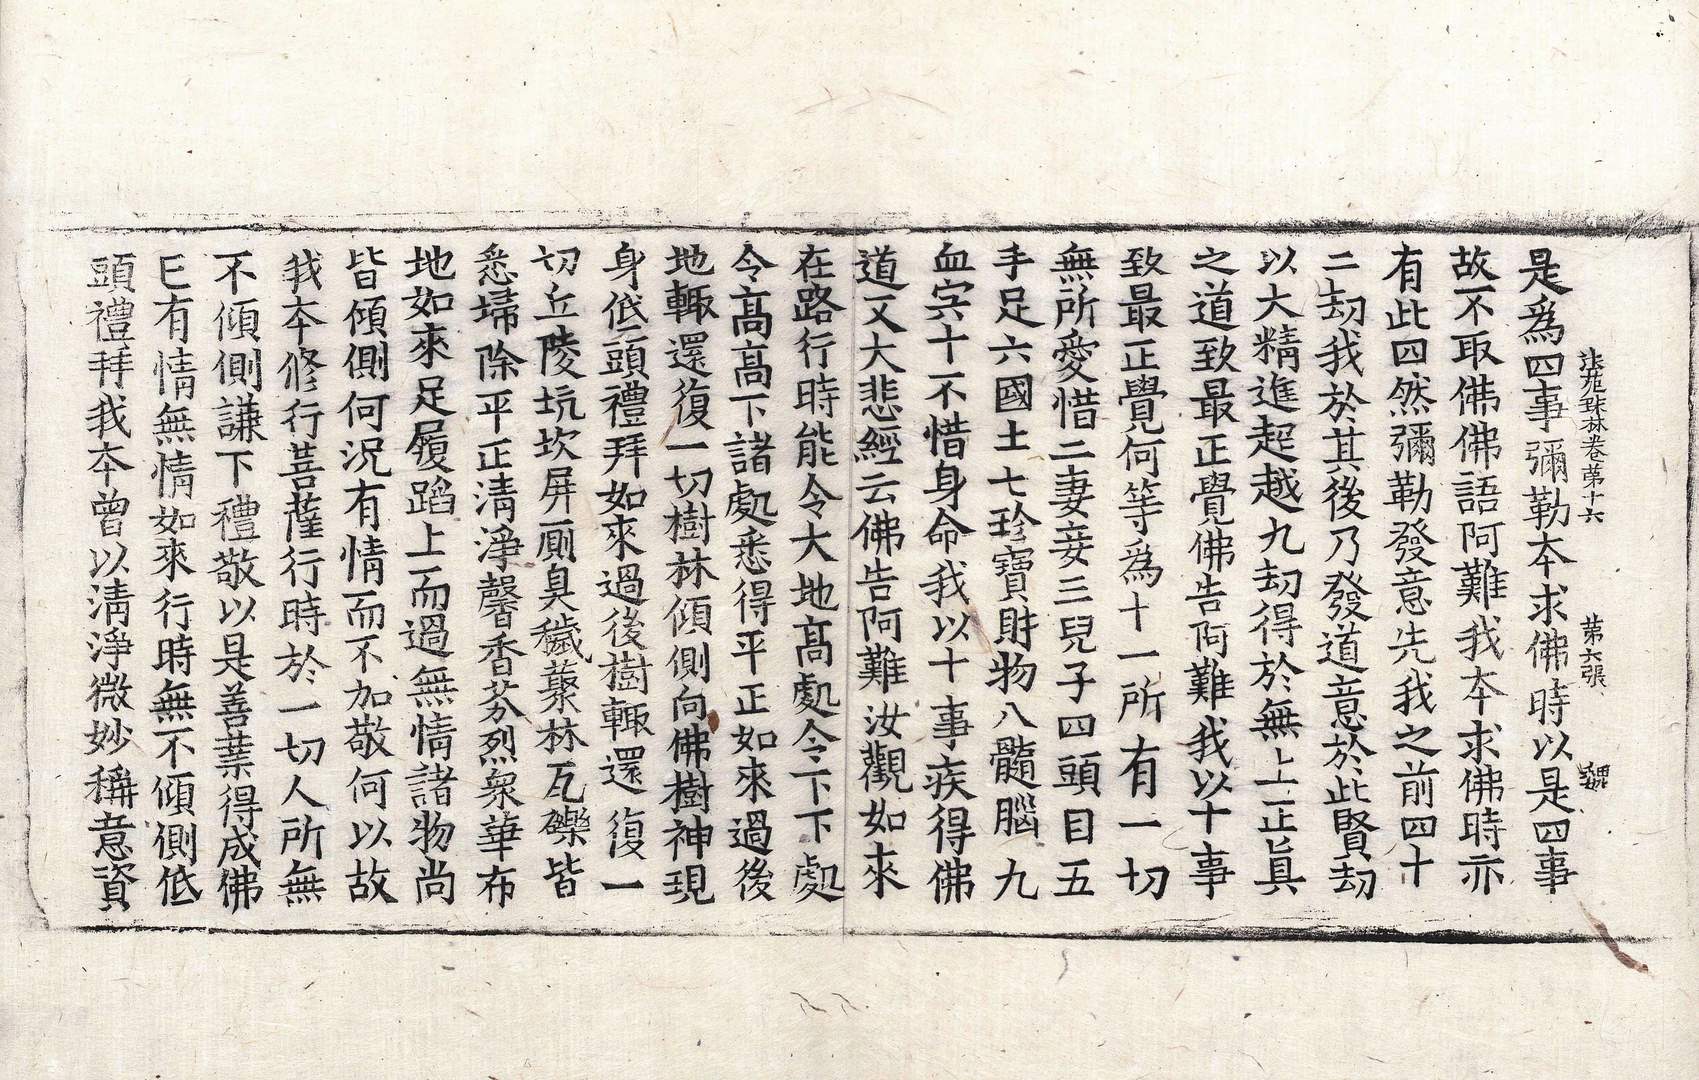 法苑珠林卷第十六　第六張　魏
是爲四事彌勒本求佛時以是四事
故不取佛佛語阿難我本求佛時亦
有此四然彌勒發意先我之前四十
二劫我於其後乃發道意於此賢劫
以大精進超越九劫得於無上正眞
之道致最正覺佛告阿難我以十事
致最正覺何等爲十一所有一切
無所愛惜二妻妾三兒子四頭目五
手足六國土七珍寶財物八髓腦九
血宍十不惜身命我以十事疾得佛
道又大悲經云佛告阿難汝觀如來
在路行時能令大地髙處令下下處
令髙髙下諸處悉得平正如來過後
地輙還復一切樹林傾側向佛樹神現
身低頭禮拜如來過後樹輙還復一
切丘陵坑坎屏厠臭穢藂林瓦礫皆
悉掃除平正清淨馨香芬烈衆華布
地如來足履蹈上而過無情諸物尚
皆傾側何況有情而不加敬何以故
我本修行菩薩行時於一切人所無
不傾側謙下禮敬以是善業得成佛
已有情無情如來行時無不傾側低
頭禮拜我本曾以清淨微妙稱意資